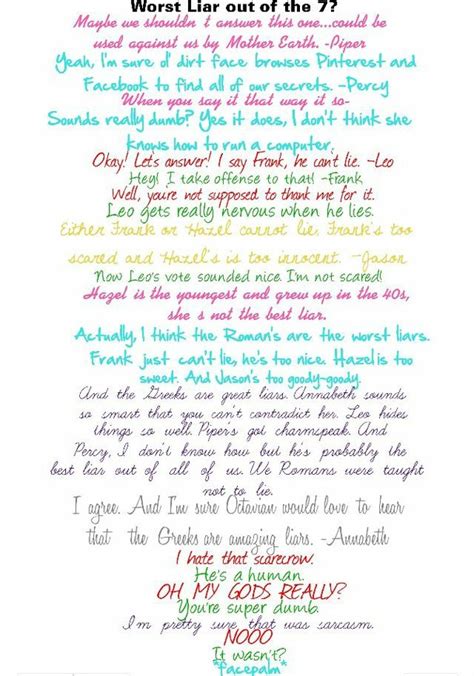 Worst Liar out of the 7?
Maybe we shouldn t answer this one...could be
used against us by Mother Earth. -Piper
Yeah, I'm sure ol' dirt face browses Pinterest and
Facebook to find all of our secrets. -Percy
When you say it that way it so-
Sounds really dumb? Yes it does, I don't think she
knows how to run a computer.
Okay! Let's answer! I say Frank, he can't lie. -Leo
Hey! I take offense to that! -Frank
Well, you're not supposed to thank me for it.
Leo gets really nervous when he lies.
Either Frank or Hazel cannot lie. Frank's too
scared and Hazel's is too innocent. -Jason
Now Leo's vote sounded nice. I'm not scared!
Hazel is the youngest and grew up in the 40s,
she s not the best liar.
Actually, I think the Roman's are the worst liars.
Frank just can't lie, he's too nice. Hazel is too
sweet. And Jason's too goody-goody.
And the Greeks are great liars. Annabeth sounds
so smart that you can't contradict her. Leo hides
things so well. Piper's got charmspeak. And
Percy, I don't know how but he's probably the
best liar out of all of us. We Romans were taught
not to lie.
I agree. And I'm sure Octavian would love to hear
that the Greeks are amazing liars. -Annabeth
I hate that scarecrow.
He's a human.
OH MY GODS REALLY?
You're super dumb.
I'm pretty sure that was sarcasm.
NOOO
It wasn't?
*facepalm*